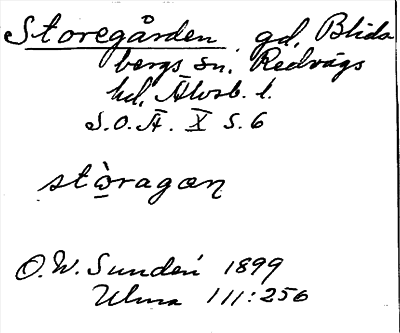 Storegården gd, Blida
bergs sn. Redvägs
hd, Älvsb. l.
S.O.Ä. X S. 6
stò̲ragaɶn
O.W. Sundén 1899
Ulma 111:256